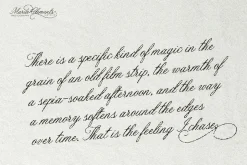 Maria Clements
There is a specific kind of magic in the
grain of an old film strip, the warmth of
a sepia-soaked afternoon, and the way
a memory softens around the edges
over time. That is the feeling I chase